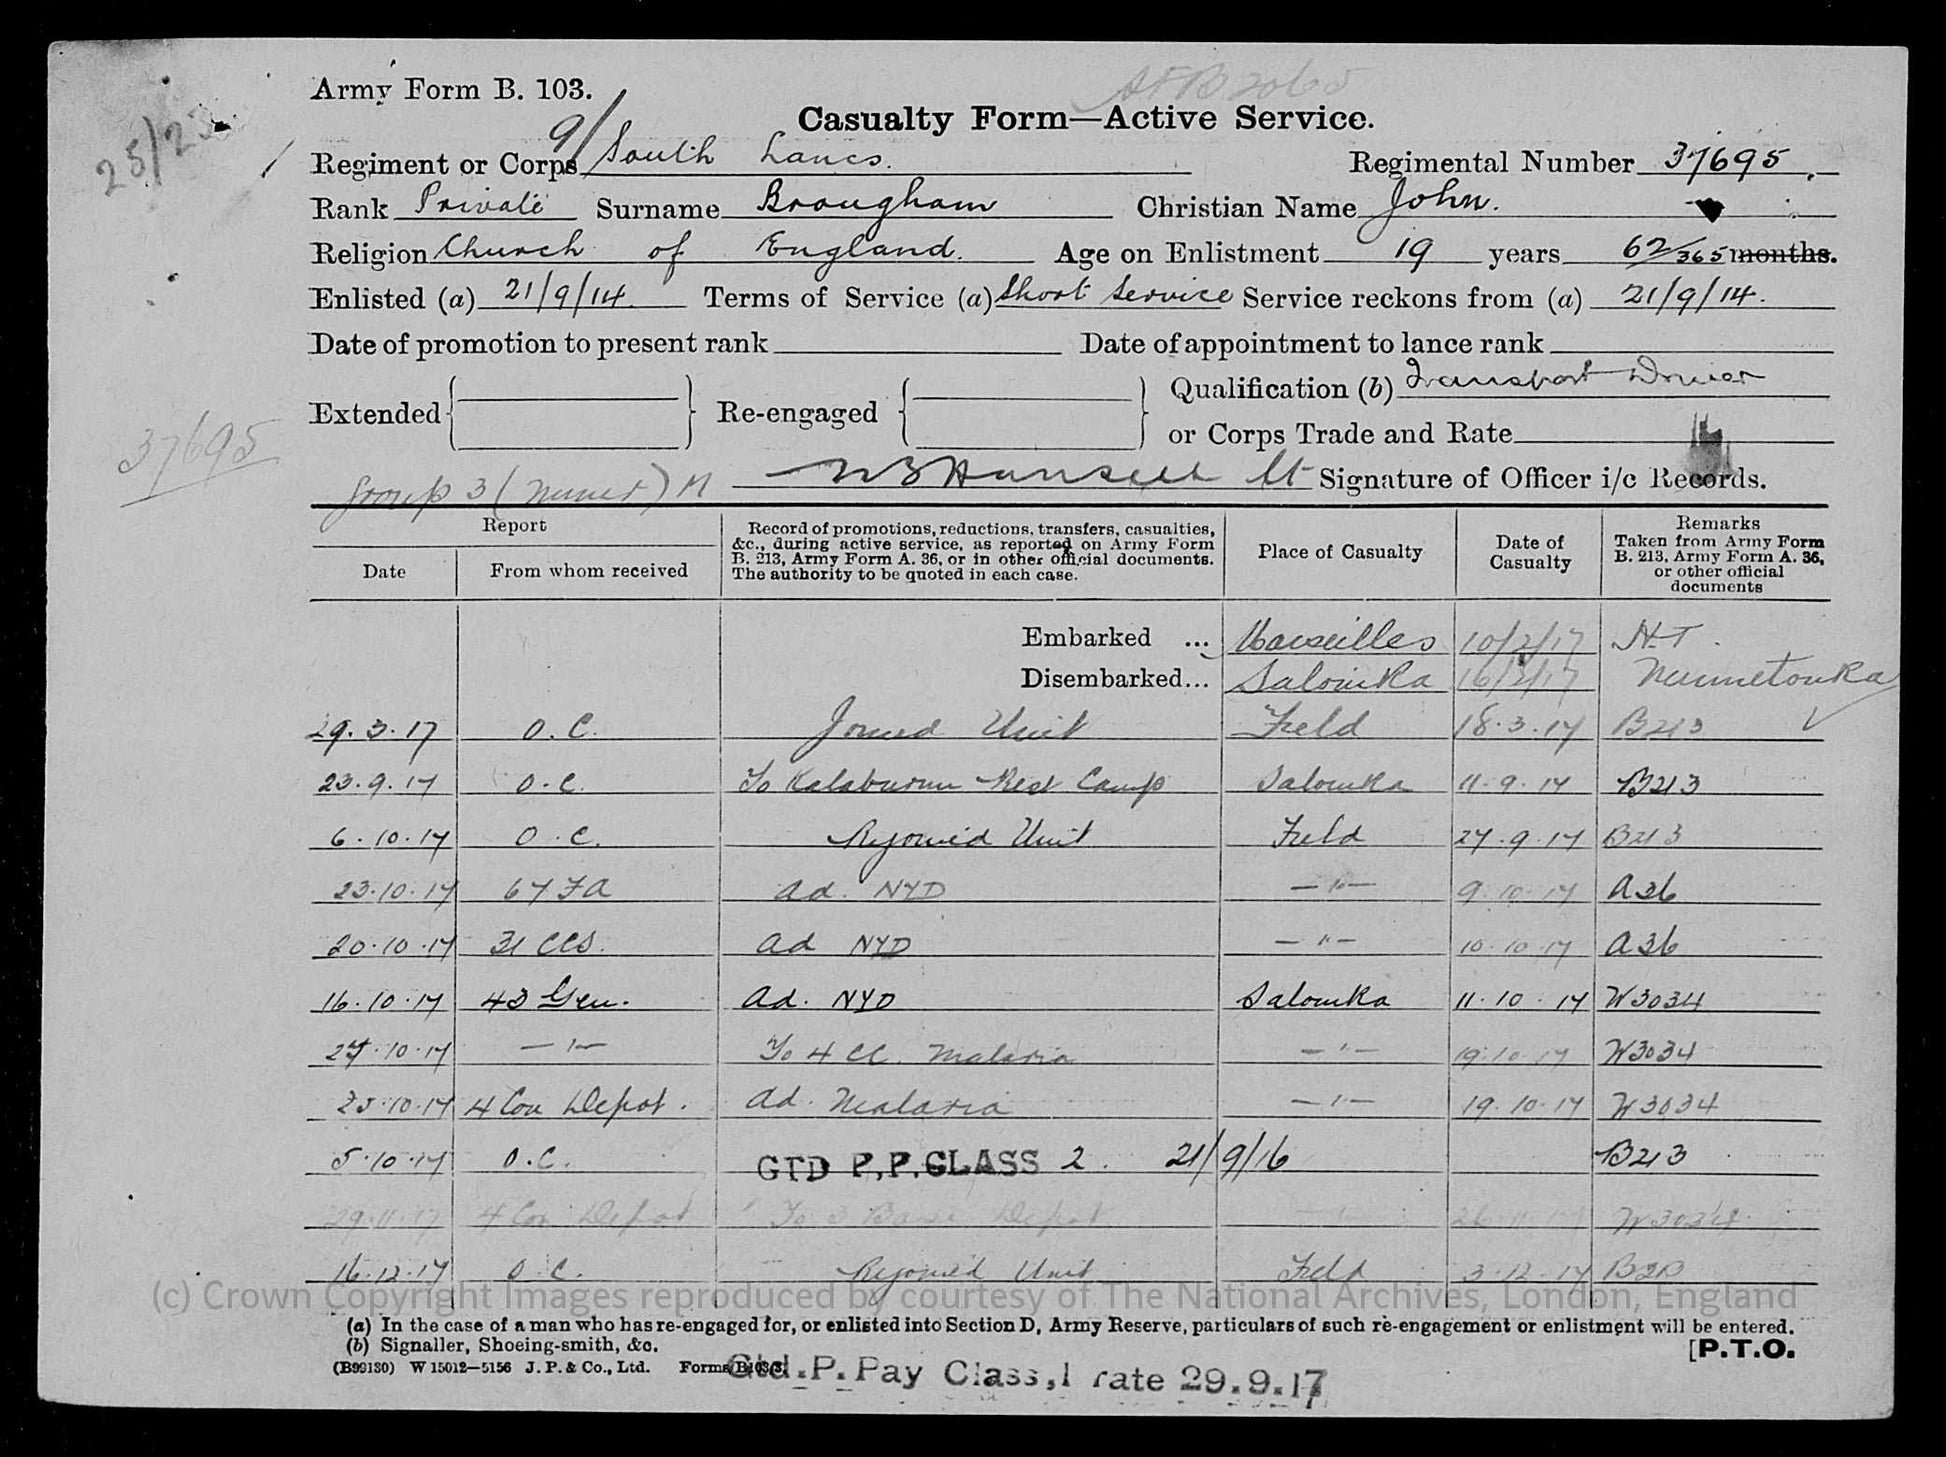 25/23
AFB 2065
Army Form B. 103.
Casualty Form—Active Service.
Regiment or Corps 9/ South Lancs. Regimental Number 37695
Rank Private Surname Brougham Christian Name John.
Religion Church of England. Age on Enlistment 19 years 62/365 months.
Enlisted (a) 21/9/14. Terms of Service (a) Short Service Service reckons from (a) 21/9/14.
Date of promotion to present rank Date of appointment to lance rank
Extended Re-engaged Qualification (b) Transport Driver
or Corps Trade and Rate
37695
Group 3 (Miner) M Lt Signature of Officer i/c Records.
Report
Date From whom received
Record of promotions, reductions, transfers, casualties,
&c., during active service, as reported on Army Form
B. 213, Army Form A. 36, or in other official documents.
The authority to be quoted in each case.
Place of Casualty
Date of
Casualty
Remarks
Taken from Army Form
B. 213, Army Form A. 36,
or other official
documents
Embarked ... Marseilles 10/2/17 H.T.
Disembarked... Salonika 16/2/17 Minnetonka
29.3.17 O.C. Joined Unit Field 18.3.17 B213
23.9.17 O.C. To Kalaburnu Rest Camp Salonika 11.9.17 B213
6.10.17 O.C. Rejoined Unit Field 27.9.17 B213
23.10.17 67 FA ad. NYD —"— 9.10.17 A36
20.10.17 31 CCS. ad NYD —"— 10.10.17 A36
16.10.17 43 Gen. ad. NYD Salonika 11.10.17 W3034
27.10.17 —"— To 4 CC. Malaria —"— 19.10.17 W3034
25.10.17 4 Con Depot. ad. Malaria —"— 19.10.17 W3034
5.10.17 O.C. GTD P.P.CLASS 2. 21/9/16 B213
29.11.17 4 Con Depot To 3 Base Depot —"— 26.11.17 W3034
16.12.17 O.C. Rejoined Unit Field 3.12.17 B213
(c) Crown Copyright Images reproduced by courtesy of The National Archives, London, England
(a) In the case of a man who has re-engaged for, or enlisted into Section D, Army Reserve, particulars of such re-engagement or enlistment will be entered.
(b) Signaller, Shoeing-smith, &c.
[P.T.O.
(B99130) W 15012—5156 J. P. & Co., Ltd. Forms
Gtd.P.Pay Class,1 rate 29.9.17